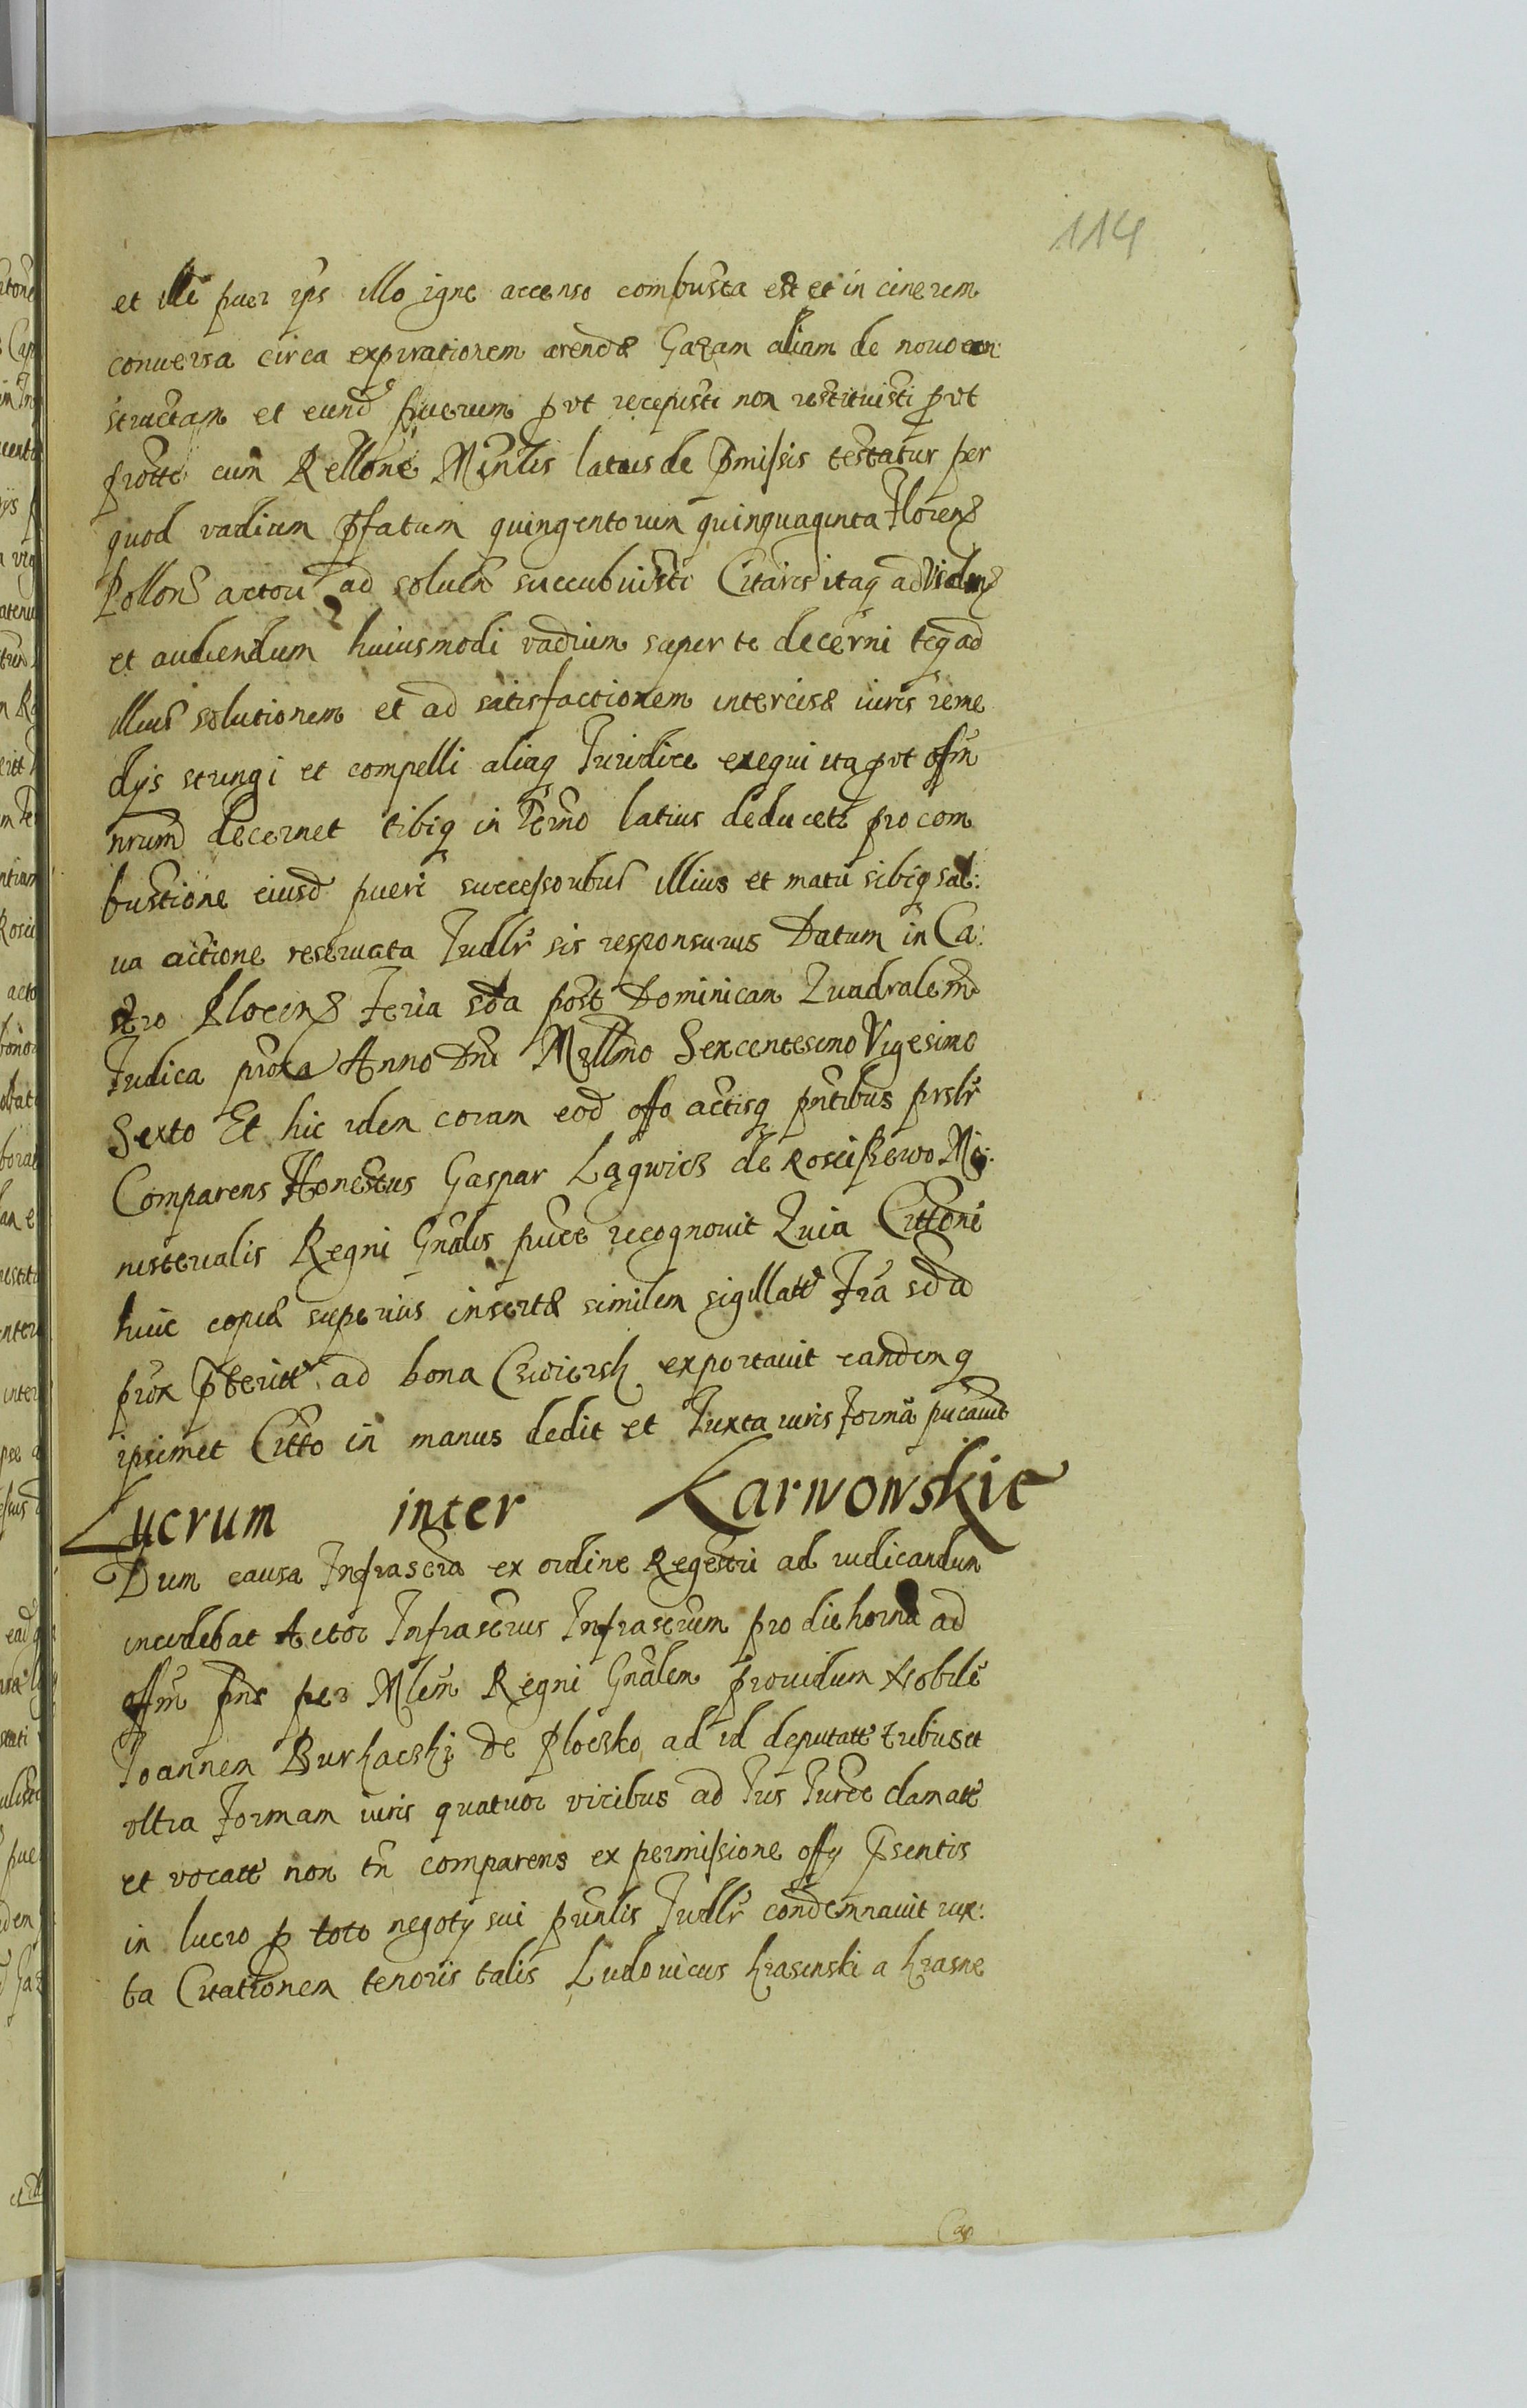 114
et ille puer ips illo igne accenso combusta est et in cinerem
conuersa circa expirationem arendæ Gazam aliam de nouo con
structam et eund puerum prvt recepisti non restituisti prvt
protte cum Rellone Minlis latius de pmissis testatur per
quod vadium pfatum quingentorum quinquaginta Floren
Pollon actori ad soluen succubuisti Citaris itaq ad viden
et audiendum huiusmodi vadium super te decerni teq ad
illius solutionem et ad satisfactionem intercisæ iuris reme
dijs stringi et compelli aliaq Juridice exequi ita prvt offm
nrum decernet tibiq in Termo latius deducetr pro com
bustione eiusd pueri successoribus illius et matri sibiq sal:
ua actione reseruata Judlr sis responsurus Datum in Ca:
stro Plocen Feria sda post Dominicam Quadralem
Judica proxa Anno Dni Mllmo Sexcentesimo Vigesimo
Sexto Et hic idem coram eod offo actisq pntibus prslr
Comparens Honestus Gaspar Lągwicz de Rosciszewo Mi:
nisterialis Regni Gnalis puce recognouit Quia Cittoni
huic copiæ superius insertæ similem sigillatt Fra sda
prox pteritt ad bona exportauit eandemq
ipsimet Citto in manus dedit et Juxta iuris formã pucauit
Lucrum inter Karwowskie
Dum causa Infrascra ex ordine Regestri ad iudicandum
incidebat Actor Infrascrus Infrascrum pro die horna ad
offm pns per Mlem Regni Gnalem prouidum Nobile
Joannem Burkacski de Ploczko ad id deputatt tribus et
vltra formam iuris quatuor vicibus ad Jus Jurdce clamatt
et vocatt non tn comparens ex permissione offy psentis
in lucro p toto negoty sui prinlis Judlr condemnauit iux:
ta Citationem tenoris talis Ludouicus Krasinski a Krasne
Cap